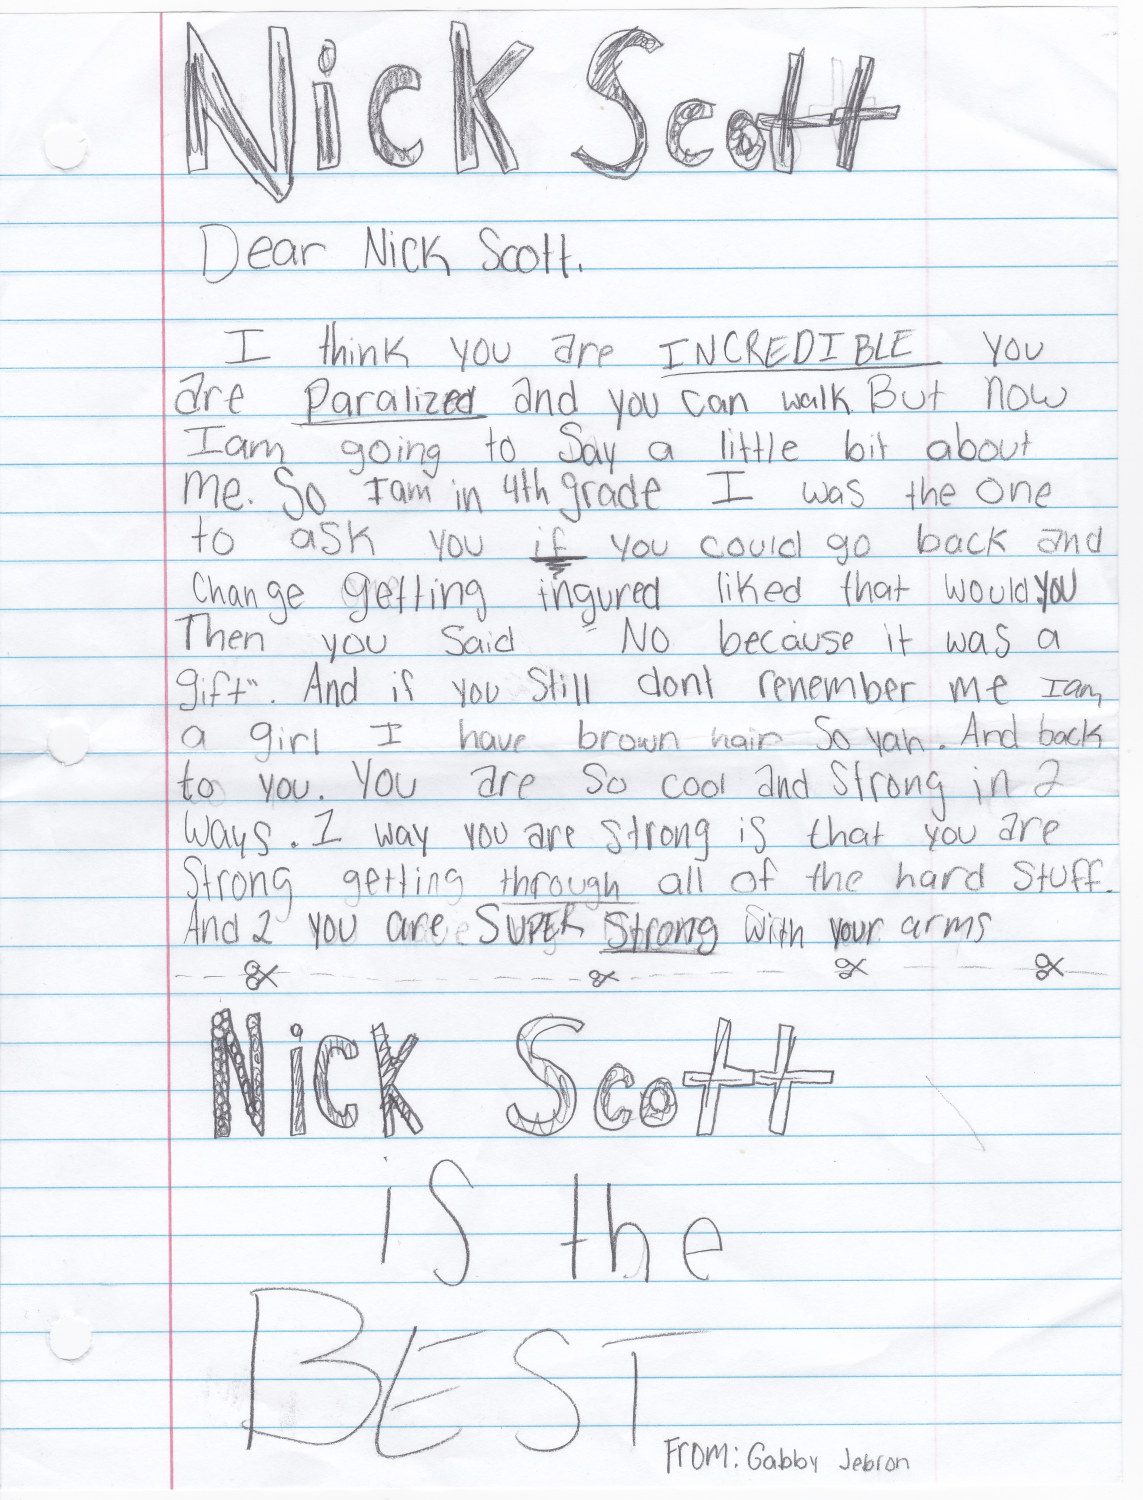 Nick Scott
Dear Nick Scott.
I think you are INCREDIBLE you
are Paralized and you can walk. But now
I am going to Say a little bit about
me. So I am in 4th grade I was the one
to ask you if you could go back and
Change getting ingured liked that would you
Then you Said NO because it was a
gift". And if you Still dont renember me I am
a girl I have brown hair So yah. And back
to you. You are So cool and Strong in 2
Ways. 1 way you are strong is that you are
Strong getting through all of the hard Stuff.
And 2 you are SUPER Strong With your arms
Nick Scott
is the
BEST
FROM: Gabby Jebron